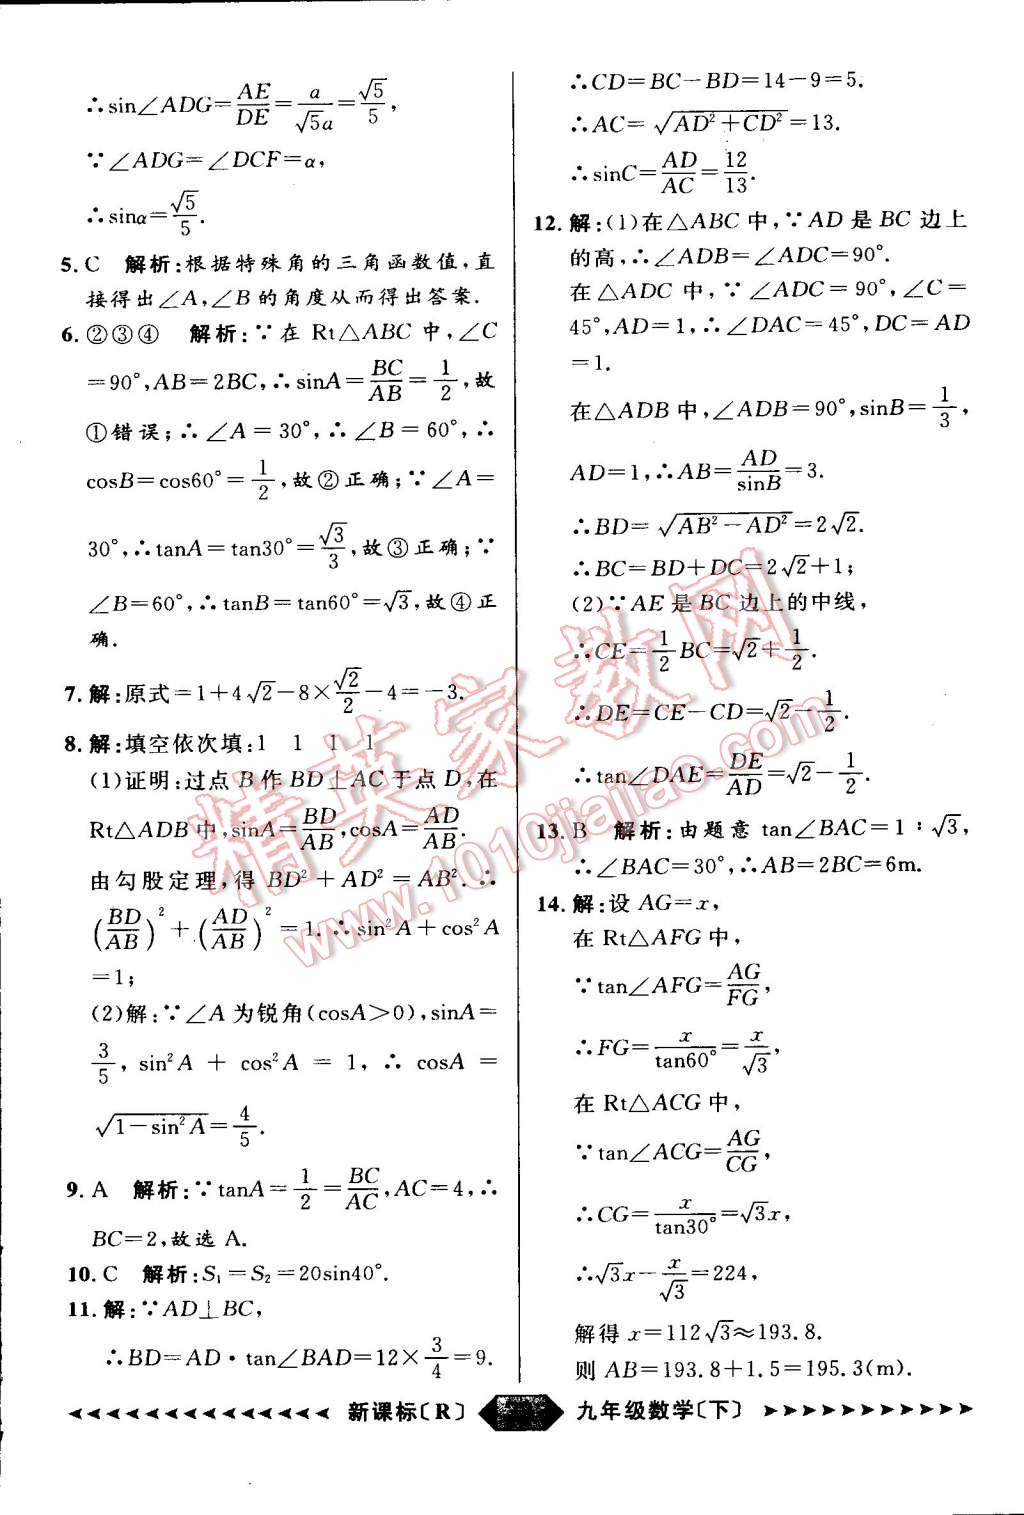 ∴sin∠ADG=AE/DE=a/√5a=√5/5,
∵∠ADG=∠DCF=α,
∴sinα=√5/5.
5. C 解析:根据特殊角的三角函数值,直
接得出∠A,∠B的角度从而得出答案.
6. ②③④ 解析:∵在 Rt△ABC 中,∠C
=90°,AB=2BC,∴sinA=BC/AB=1/2,故
①错误;∴∠A=30°,∴∠B=60°,∴
cosB=cos60°=1/2,故②正确;∵∠A=
30°,∴tanA=tan30°=√3/3,故③正确;∵
∠B=60°,∴tanB=tan60°=√3,故④正
确.
7. 解:原式=1+4√2-8×√2/2-4=-3.
8. 解:填空依次填:1 1 1 1
(1)证明:过点B作BD⊥AC于点D,在
Rt△ADB中,sinA=BD/AB,cosA=AD/AB.
由勾股定理,得 BD²+AD²=AB².∴
(BD/AB)²+(AD/AB)²=1.∴sin²A+cos²A
=1;
(2)解:∵∠A为锐角(cosA>0),sinA=
3/5,sin²A+cos²A=1,∴cosA=
√(1-sin²A)=4/5.
9. A 解析:∵tanA=1/2=BC/AC,AC=4,∴
BC=2,故选A.
10. C 解析:S₁=S₂=20sin40°.
11. 解:∵AD⊥BC,
∴BD=AD·tan∠BAD=12×3/4=9.
∴CD=BC-BD=14-9=5.
∴AC=√(AD²+CD²)=13.
∴sinC=AD/AC=12/13.
12. 解:(1)在△ABC中,∵AD是BC边上
的高,∴∠ADB=∠ADC=90°.
在△ADC中,∵∠ADC=90°,∠C=
45°,AD=1,∴∠DAC=45°,DC=AD
=1.
在△ADB中,∠ADB=90°,sinB=1/3,
AD=1,∴AB=AD/sinB=3.
∴BD=√(AB²-AD²)=2√2.
∴BC=BD+DC=2√2+1;
(2)∵AE是BC边上的中线,
∴CE=1/2BC=√2+1/2.
∴DE=CE-CD=√2-1/2.
∴tan∠DAE=DE/AD=√2-1/2.
13. B 解析:由题意 tan∠BAC=1∶√3,
∴∠BAC=30°,∴AB=2BC=6m.
14. 解:设 AG=x,
在 Rt△AFG 中,
∵tan∠AFG=AG/FG,
∴FG=x/tan60°=x/√3,
在 Rt△ACG 中,
∵tan∠ACG=AG/CG,
∴CG=x/tan30°=√3x,
∴√3x-x/√3=224,
解得 x=112√3≈193.8.
则 AB=193.8+1.5=195.3(m).
新课标〔R〕 九年级数学〔下〕
精英家教网
www.1010jiajiao.com